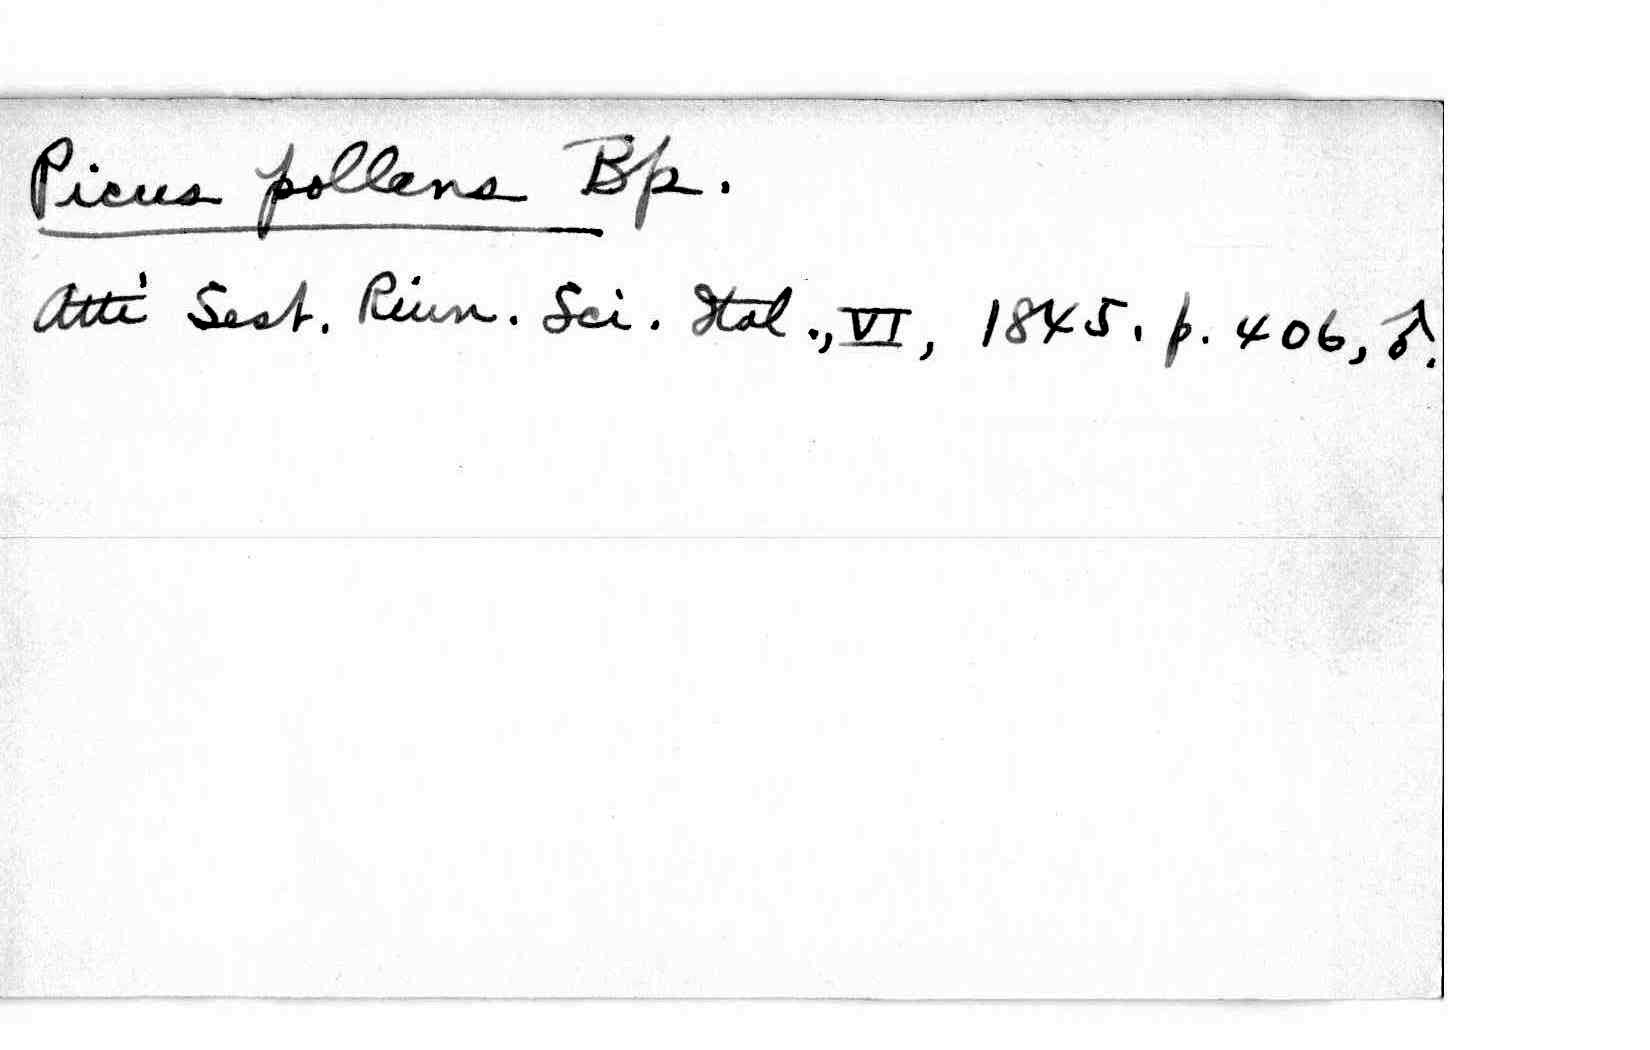 Picus pollens Bp.
Atti Sest. Riun. Sci. Ital., VI, 1845. p. 406, ♂.